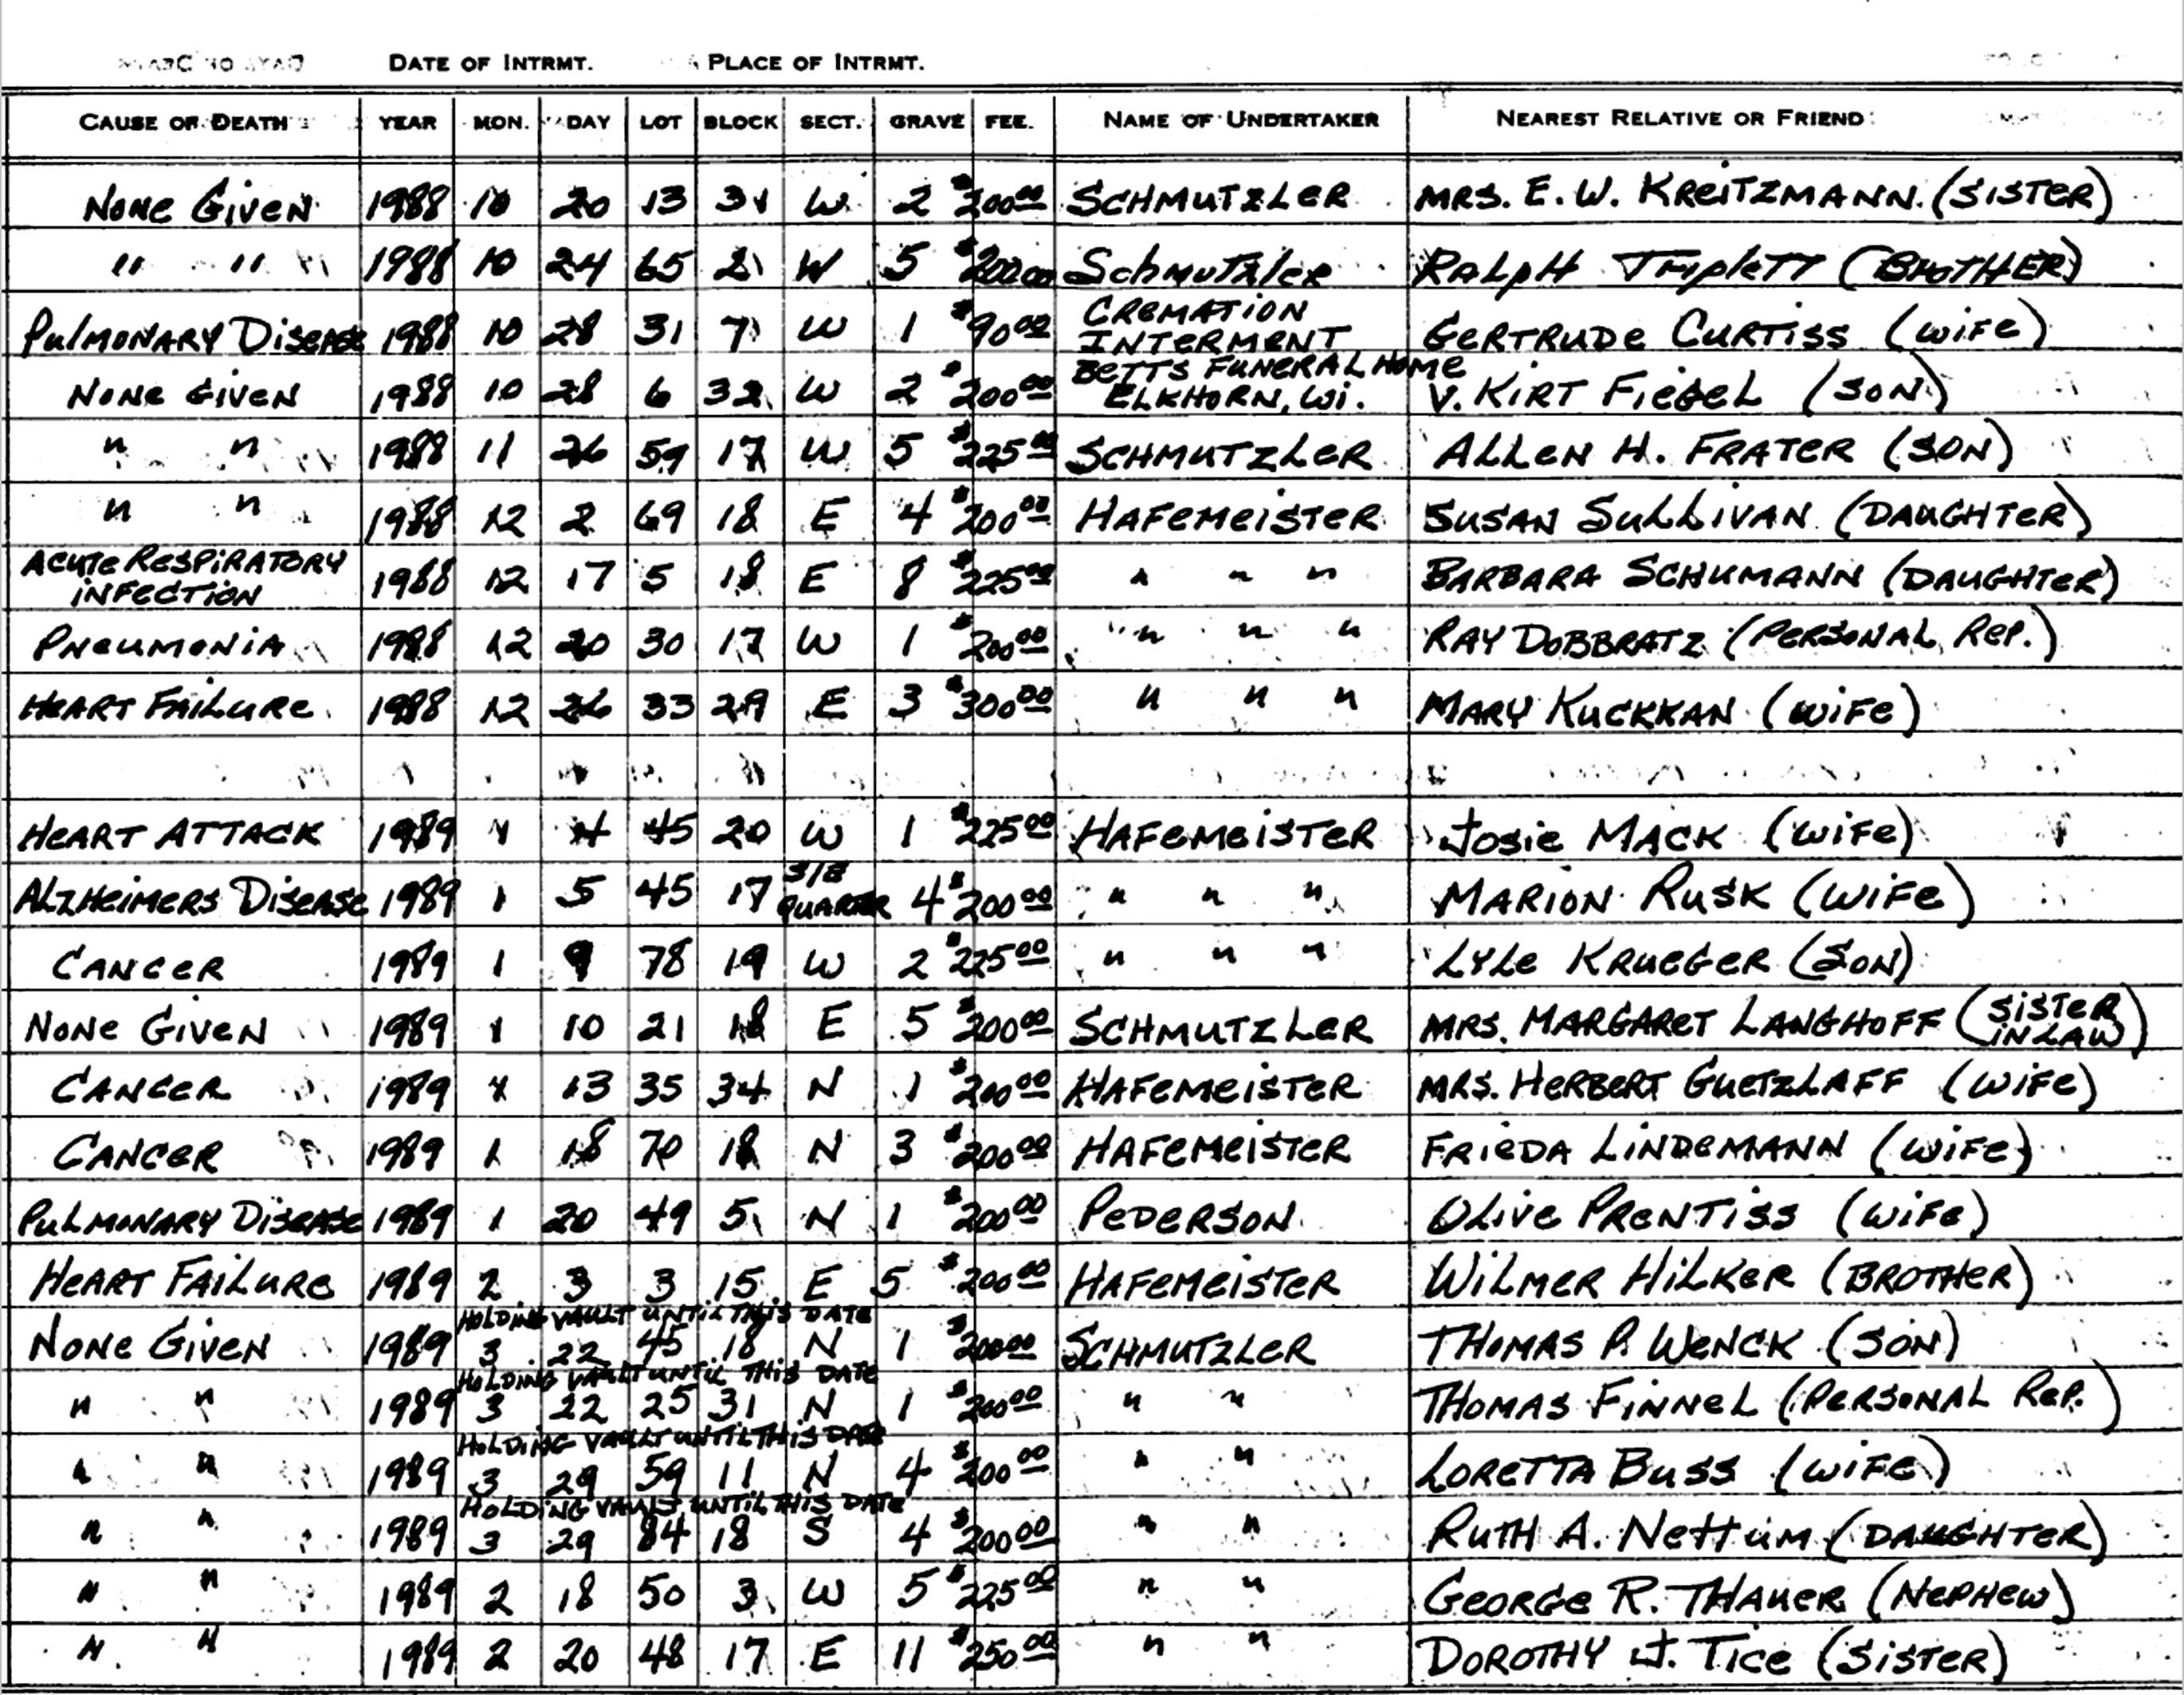 DATE OF INTRMT. PLACE OF INTRMT.
CAUSE OF DEATH YEAR MON. DAY LOT BLOCK SECT. GRAVE FEE. NAME OF UNDERTAKER NEAREST RELATIVE OR FRIEND
NONE GIVEN 1988 10 20 13 31 W 2 $200.00 SCHMUTZLER MRS. E. W. KREITZMANN (SISTER)
" " 1988 10 24 65 2 W 5 $200.00 SCHMUTZLER RALPH TRIPLETT (BROTHER)
PULMONARY DISEASE 1988 10 28 31 7 W 1 $90.00 CREMATION INTERMENT GERTRUDE CURTISS (WIFE)
NONE GIVEN 1988 10 28 6 32 W 2 $200.00 BETTS FUNERAL HOME ELKHORN, WI. V. KIRT FIEGEL (SON)
" " 1988 11 26 59 17 W 5 $225.00 SCHMUTZLER ALLEN H. FRATER (SON)
" " 1988 12 2 69 18 E 4 $200.00 HAFEMEISTER SUSAN SULLIVAN (DAUGHTER)
ACUTE RESPIRATORY INFECTION 1988 12 17 5 18 E 8 $225.00 " " " BARBARA SCHUMANN (DAUGHTER)
PNEUMONIA 1988 12 20 30 17 W 1 $200.00 " " " RAY DOBBRATZ (PERSONAL REP.)
HEART FAILURE 1988 12 26 33 29 E 3 $300.00 " " " MARY KUCKKAN (WIFE)
HEART ATTACK 1989 1 4 45 20 W 1 $225.00 HAFEMEISTER JOSIE MACK (WIFE)
ALZHEIMERS DISEASE 1989 1 5 45 17 QUARTER 4 $200.00 " " " MARION RUSK (WIFE)
CANCER 1989 1 9 78 19 W 2 $225.00 " " " LYLE KRUEGER (SON)
NONE GIVEN 1989 1 10 21 18 E 5 $200.00 SCHMUTZLER MRS. MARGARET LANGHOFF (SISTER IN LAW)
CANCER 1989 1 13 35 34 N 1 $200.00 HAFEMEISTER MRS. HERBERT GUETZLAFF (WIFE)
CANCER 1989 1 18 70 18 N 3 $200.00 HAFEMEISTER FRIEDA LINDEMANN (WIFE)
PULMONARY DISEASE 1989 1 20 49 5 N 1 $200.00 PEDERSON OLIVE PRENTISS (WIFE)
HEART FAILURE 1989 2 3 3 15 E 5 $200.00 HAFEMEISTER WILMER HILKER (BROTHER)
HOLDING VAULT UNTIL THIS DATE
NONE GIVEN 1989 3 22 45 18 N 1 $200.00 SCHMUTZLER THOMAS P. WENCK (SON)
HOLDING VAULT UNTIL THIS DATE
" " 1989 3 22 25 31 N 1 $200.00 " " THOMAS FINNEL (PERSONAL REP.)
HOLDING VAULT UNTIL THIS DATE
" " 1989 3 29 59 11 N 4 $200.00 " " LORETTA BUSS (WIFE)
HOLDING VAULT UNTIL THIS DATE
" " 1989 3 29 84 18 S 4 $200.00 " " RUTH A. NETTUM (DAUGHTER)
" " 1989 2 18 50 3 W 5 $225.00 " " GEORGE R. THAUER (NEPHEW)
" " 1989 2 20 48 17 E 11 $250.00 " " DOROTHY J. TICE (SISTER)